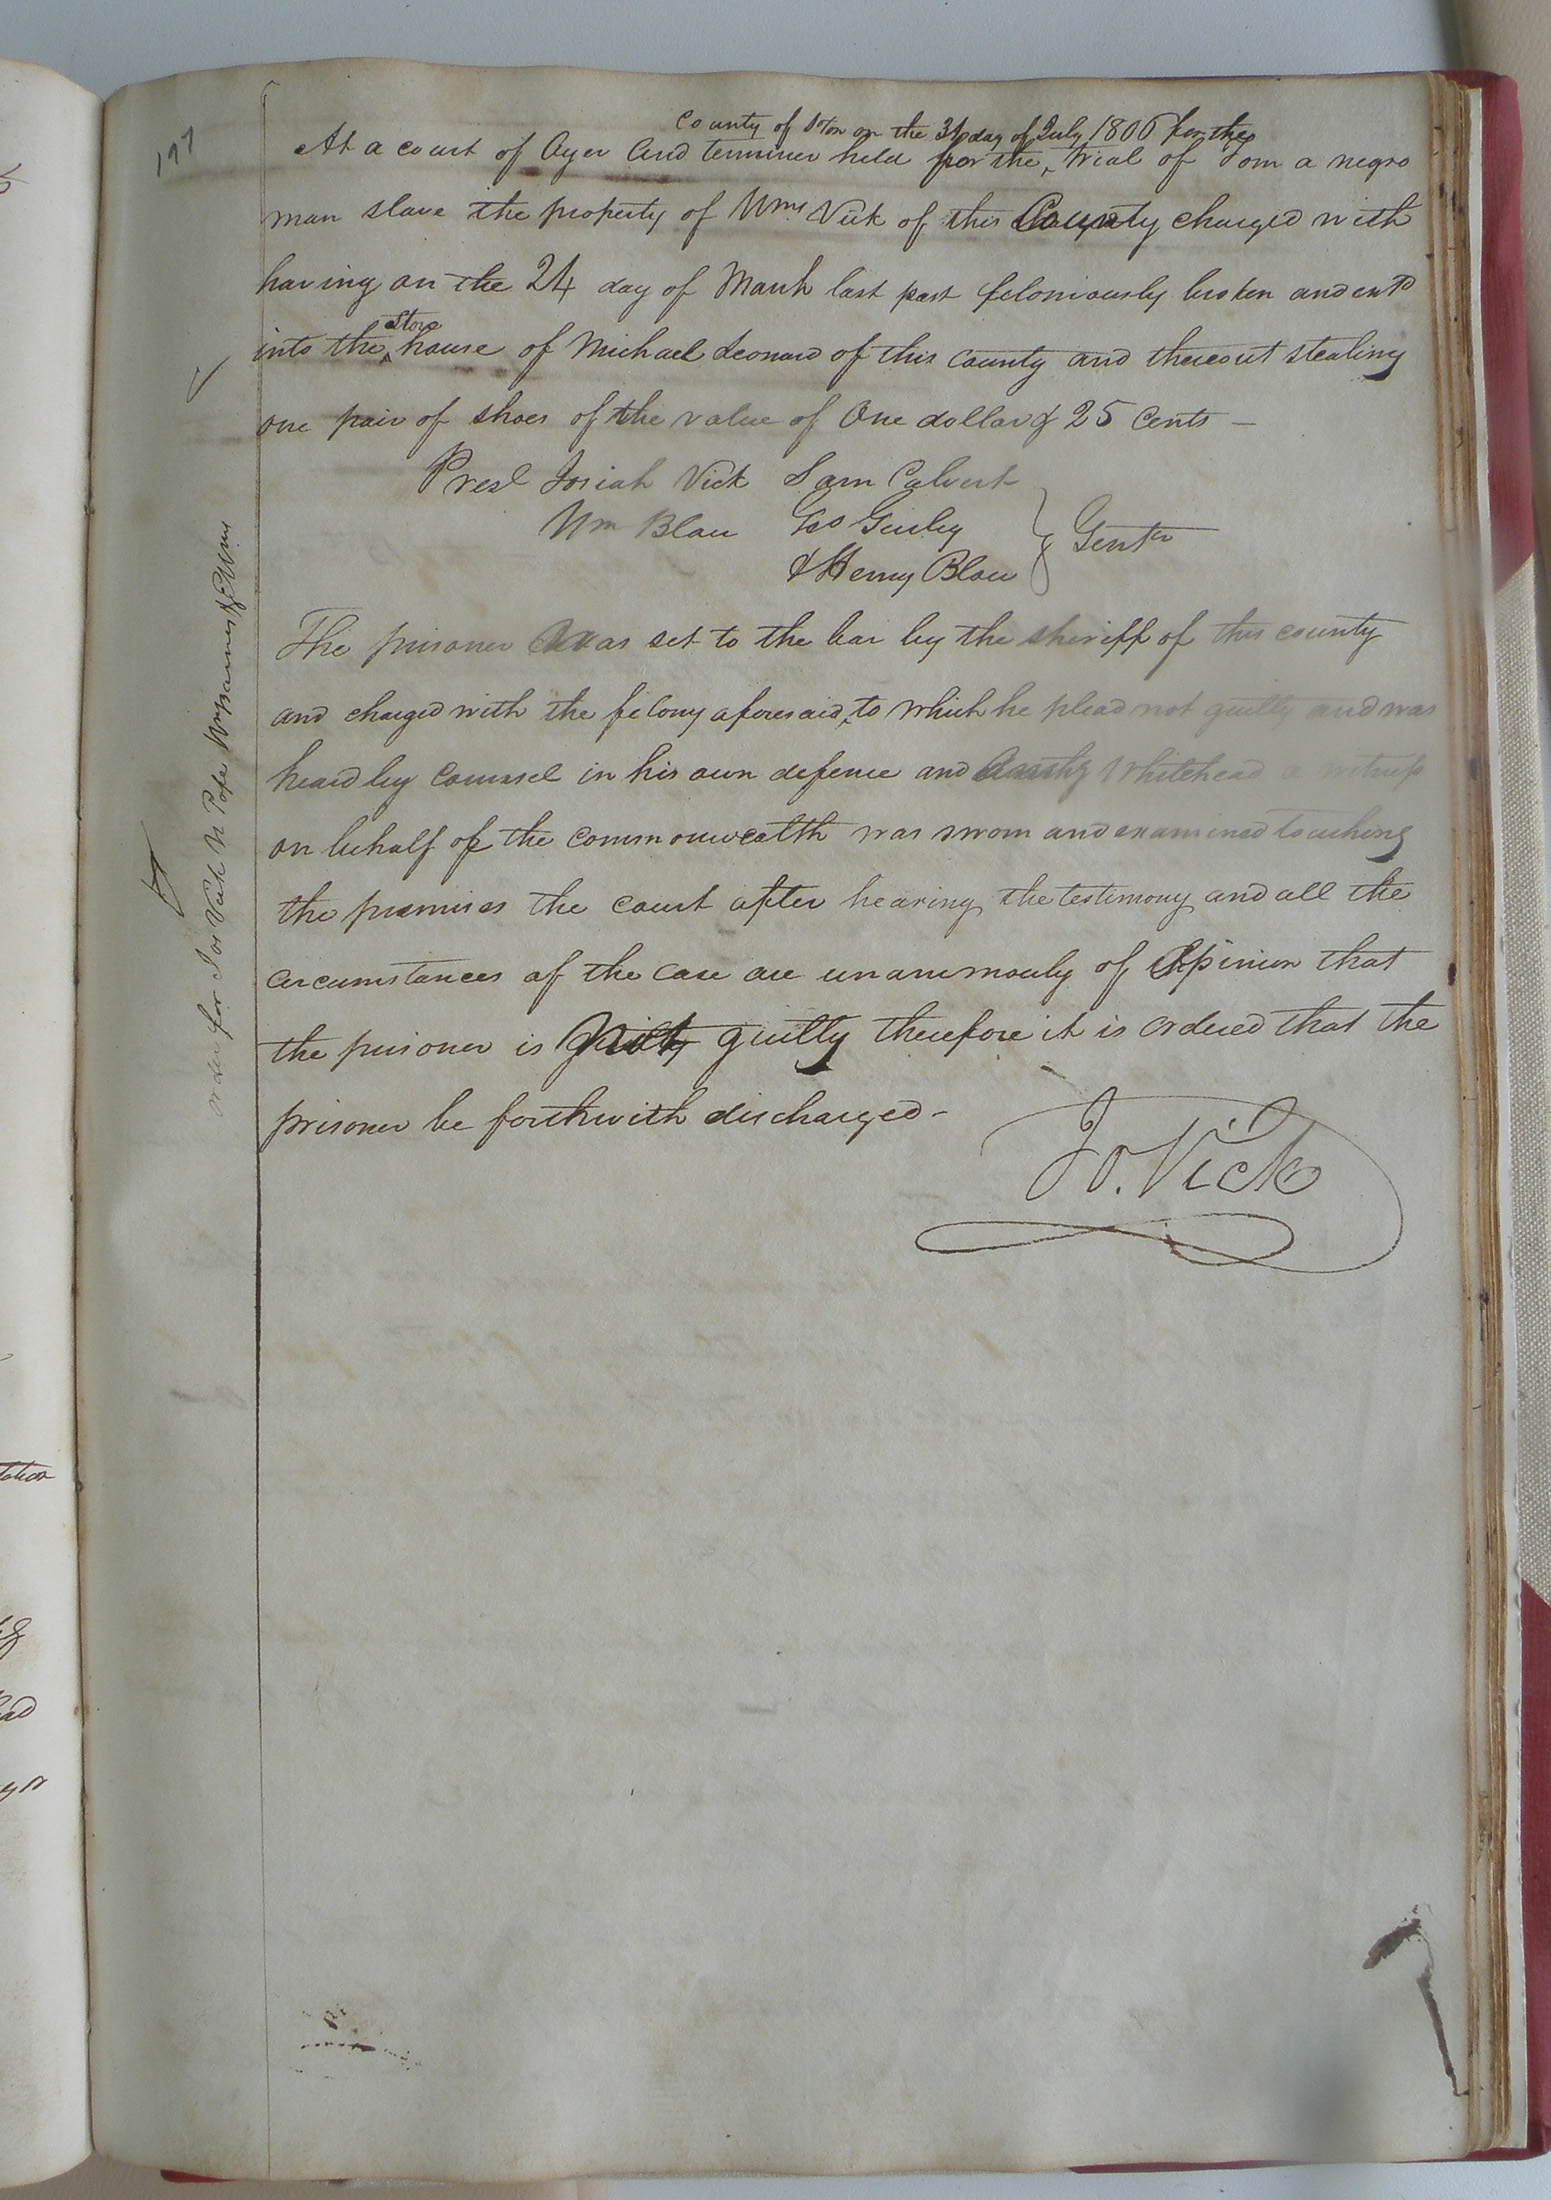 197
County of Soton on the 31 day of July 1806 for the
At a court of Oyer and terminer held for the trial of Tom a negro
man slave the property of Wms Vick of this County charged with
having on the 24 day of March last past feloniously broken and entd
into the store house of Michael Leonard of this county and thereout stealing
one pair of shoes of the value of One dollar & 25 Cents —
Presl Josiah Vick Sam Calvert
Wm Blow Geo Gurley
& Henry Blow } Gentn
The prisoner was set to the bar by the sheriff of this county
and charged with the felony aforesaid, to which he plead not guilty and was
heard by Counsel in his own defence and Whitehead a witness
on behalf of the commonwealth was sworn and examined touching
the premises the court after hearing the testimony and all the
circumstances of the case are unanimously of Opinion that
the prisoner is guilty therefore it is ordered that the
prisoner be forthwith discharged -
Jo. Vick
order for Jos Vick N Pope
tation